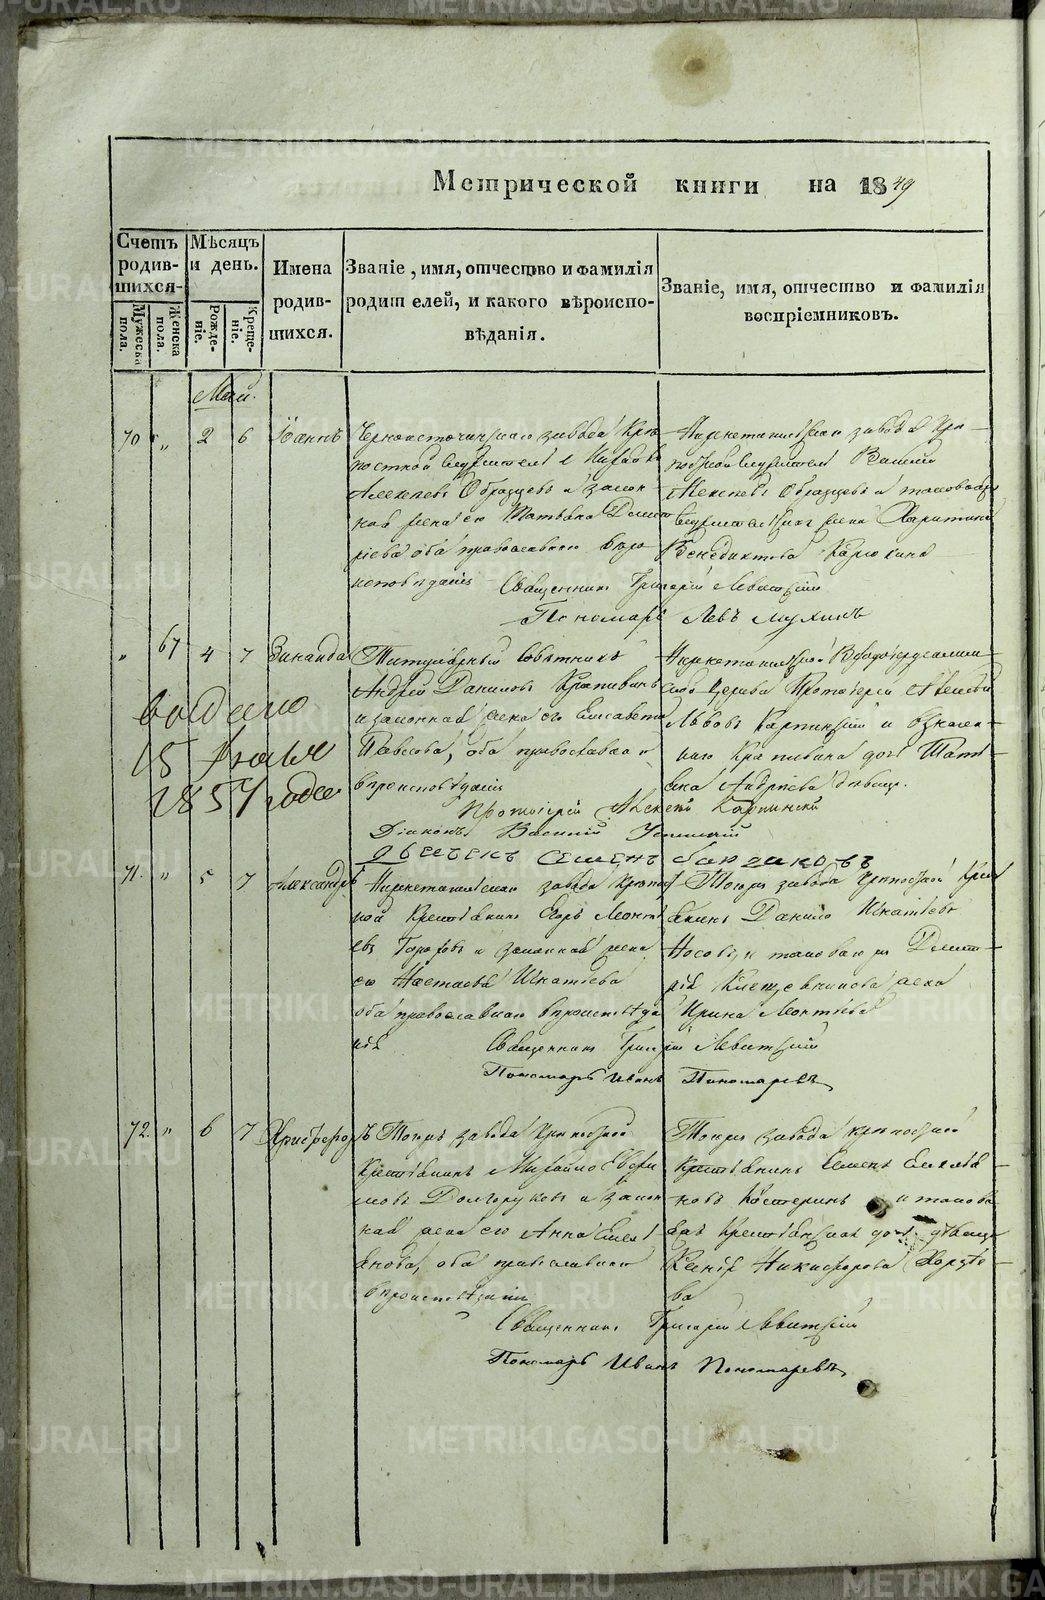 METRIKI.GASO-URAL.RU
Метрической книги на 1849
Счетъ родив-шихся.
Мужеска пола.
Женска пола.
Мѣсяцъ и день.
Рожде-ніе.
Креще-ніе.
Имена родив-шихся.
Званіе, имя, отчество и фамилія родителей, и какого вѣроиспо-вѣданія.
Званіе, имя, отчество и фамилія воспріемниковъ.
Май.
70 „ 2 6 Іоаннъ
Черноисточинскаго завода Крѣ
постной служитель
Алексѣевъ Образцовъ и закон
ная жена его Татьяна Дмит
ріева оба православнаго вѣро
исповѣданія
Нижнетагильскаго завода Крѣ-
постной служитель Василій
Алексѣевъ Образцовъ и таковаго
служителя жена Харитина
Бенедиктова
Священникъ Григорій Левитскій
Пономарь Левъ Мухинъ
„ 67 4 7 Зинаида
Титулярный Совѣтникъ
Андрей Даниловъ Крапивинъ
и законная жена его Елисавета
Павлова, оба православнаго
вѣроисповѣданія
Нижнетагильской Входоіерусалим-
ской Церкви Протоіерей Алексѣй
Львовъ Карпинскій и означен-
наго Крапивина дочь Татi-
яна Андреева дѣвица.
выдано
15 Іюля
1857 года
Протоіерей Алексѣй Карпинскій
Діаконъ Василій Успенскій
71. „ 5 7 Александръ
Нижнетагильскаго завода Крѣпост
ной Крестьянинъ Егоръ Леонть
евъ и законная жена
его Настасья Игнатіева
оба православнаго вѣроисповѣда
нія
Тогожъ завода Крѣпостной Крест
янинъ Данило Игнатіевъ
Носовъ и таковагожъ Дмит-
рія жена
Ирина Леонтіева
Священникъ Григорій Левитскій
Пономарь Иванъ Пономаревъ
72. „ 6 7 Христофоръ
Тогожъ завода Крѣпостной
Крестьянинъ Михайло
Долгоруковъ и закон
ная жена его Анна Емель
янова, оба православнаго
вѣроисповѣданія
Тогожъ завода крѣпостной
Крестьянинъ Семенъ Емелья-
новъ Костеринъ и таков
Крестьянина дочь дѣвица
Ксенія Никифорова
ва
Священникъ Григорій Левитскій
Пономарь Иванъ Пономаревъ